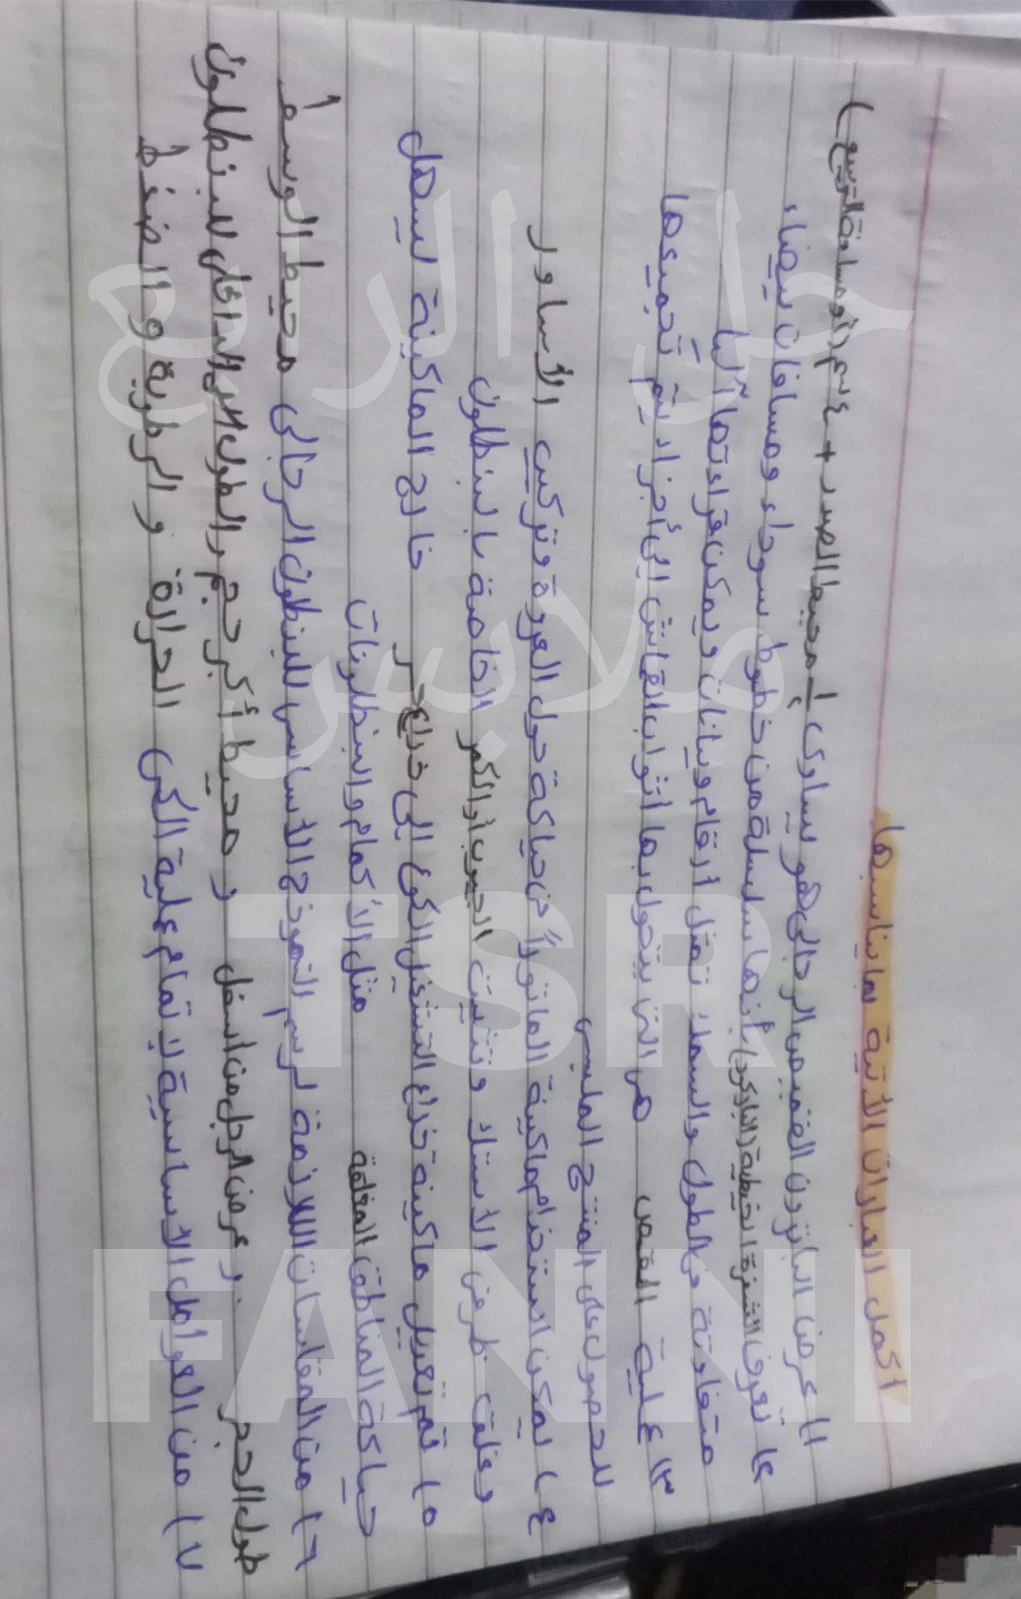 اكمل العبارات الأتية بما يناسبها
١) عرض الباترون القميص الرجالى هو يساوى ¼ محيط الصدر + ٤ سم (أو مسافة التوسيع)
٢) تعرف الشفرة الخيطية (الباركود) بأنها سلسلة من خطوط سوداء ومسافات بيضاء
متفاوتة فى الطول والسمك تمثل أرقام وبيانات ويمكن قراءتها آلياً
٣) عملية القص هى التى يتحول بها أثواب القماش إلى أجزاء يتم تجميعها
للحصول على المنتج الملبسى
٤) يمكن استخدام ماكينة الماتورا فى حياكة حول العروة وتركيب الأساور
وغلق طرفى الأستك وتثبيت الجيوب أو الكمر الخاصة بالبنطلون
٥) تم تعديل ماكينة ذراع التشغيل الكوع إلى ذراع حر خارج الماكينة ليسهل
حياكة المناطق المغلقة مثل الأكمام والبنطلونات
٦) من المقاسات اللازمة لرسم النموذج الأساسى للبنطلون الرجالى محيط الوسط
طول الحجر و عرض الرجل من أسفل و محيط أكبر حجم والطول الداخلى للبنطلون
٧) من العوامل الأساسية لاتمام عملية الكى الحرارة و الرطوبة و الضغط
حل الربع
ملابس
TSR
FANNI